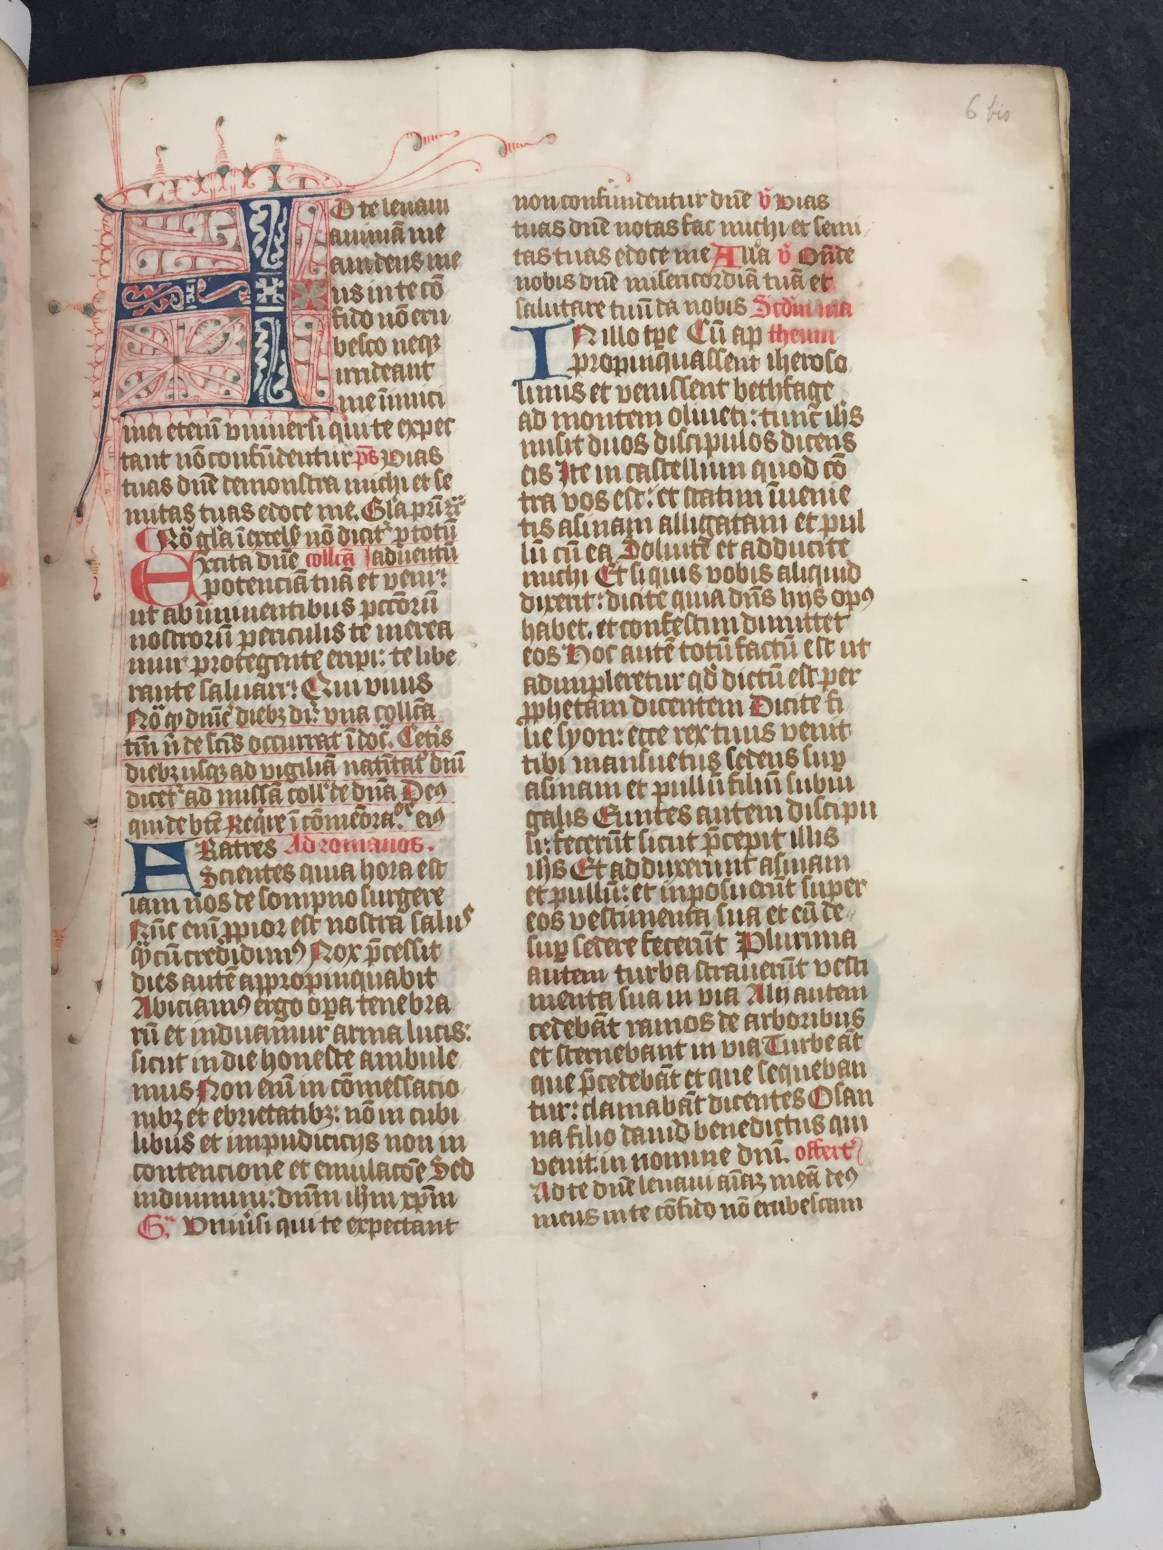 6 bis
AD te leuaui
animā me
am deus me
us in te cō
fido nō eru
besco neqꝫ
irrideant
me inimici
mei etenī vniuersi qui te expec
tant nō confūdentur p̄s Vias
tuas dn̄e demonstra michi et se
mitas tuas edoce me. Gl̓a pr̄i
No͞ gl̓a ī excel̓ nō dicit᷑ p totū
Excita dn̄e coll̄ca aduentū
potenciā tuā et veni:
ut ab īminentibus pctōrū
nostrorū periculis te merea
mur protegente eripi: te libe
rante saluari: Qui viuis
No͞ qꝫ dn̄ic̓ diebꝫ dr̄ vna coll̄ca
tm̄ n̄ de scīs occurrat ī do͞c. Cetīs
diebꝫ usqꝫ ad vigiliā natiītat᷒ dn̄i
dicet᷑ ad missā coll̓ te dn̄a Deꝰ
qui de btē Reqire ī cōmēora. eiꝰ
FRatres Ad romanos.
Scientes quia hora est
iam nos de sompno surgere
Nūc enī ꝓpior est nostra salus
qꝫ cū credidimꝰ Nox p̄cessit
dies autē appropinquabit
Abiciamꝰ ergo opa tenebra
rū et induamur arma lucis:
sicut in die honeste ambule
mus Non enī in cōmessacio
nibꝫ et ebrietatibꝫ: nō in cubi
libus et impudicicijs non in
contencione et emulacōe Sed
induimini: dn̄m ihm xp̄m
Gr̄. Vniu̓si qui te expectant
non confundentur dn̄e v̄ Vias
tuas dn̄e notas fac michi et semi
tas tuas edoce me All̓a v̄ On̄de
nobis dn̄e misericordiā tuā et
salutare tuū da nobis Scdm ma
IN illo tp̄e Cū ap theum
propinquassent iheroso
limis et venissent bethfage
ad montem oliueti: tunc ihs̄
misit duos discipulos dicens
eis Ite in castellum quod cō
tra vos est: et statim īuenie
tis asinam alligatam et pul
lū cū ea Soluite et adducite
michi Et si quis vobis aliquid
dixerit: dicite quia dn̄s hijs opꝰ
habet. et confestim dimittet
eos Hoc autē totū factū est ut
adimpleretur qd̓ dictū est per
ꝓphetam dicentem Dicite fi
lie syon: ecce rex tuus venit
tibi mansuetus sedens sup
asinam et pullū filiū subiu
galis Euntes autem discipu
li: fecerūt sicut p̄cepit illis
ihs̄ Et adduxerunt asinam
et pullū: et inposuerūt super
eos vestimenta sua et eū de
sup sedere fecerūt Plurima
autem turba strauerūt vesti
menta sua in via Alij autem
cedebāt ramos de arboribus
et sternebant in via Turbe āt
que p̄cedebāt et que sequeban
tur: clamabāt dicentes Osan
na filio dauid benedictus qui
venit: in nomine dn̄i. offert᷑
Ad te dn̄e leuaui aīaꝫ meā deꝰ
meus in te cōfido nō erubescam